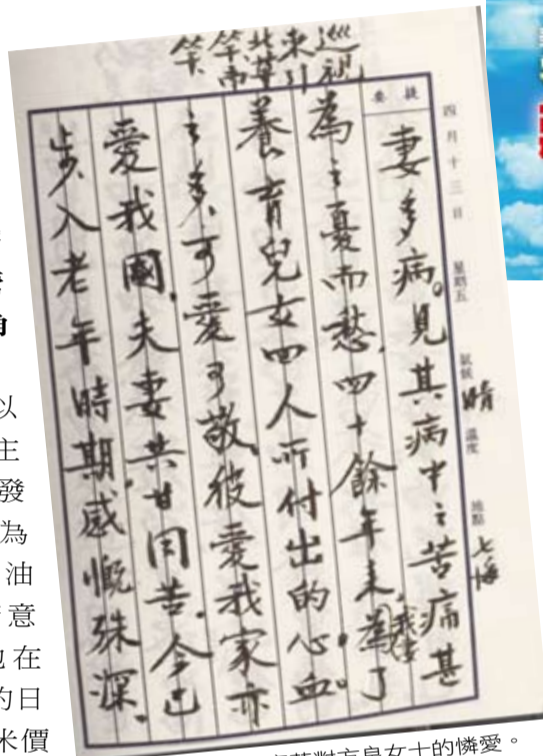 巡視
東引
北竿
提要
四月十三日 星期五 氣候 晴 溫度 地點 七海
妻多病。見其病中之苦痛甚
為之憂而愁,四十餘年來,我妻為了
養育兒女四人所付出的心血。
之多,可愛可敬,彼愛我家亦
愛我國,夫妻共甘同苦。今已
步入老年時期,感慨殊深。
以
主
發
為
油
意
地在
的日
米價
對方良女士的憐愛。